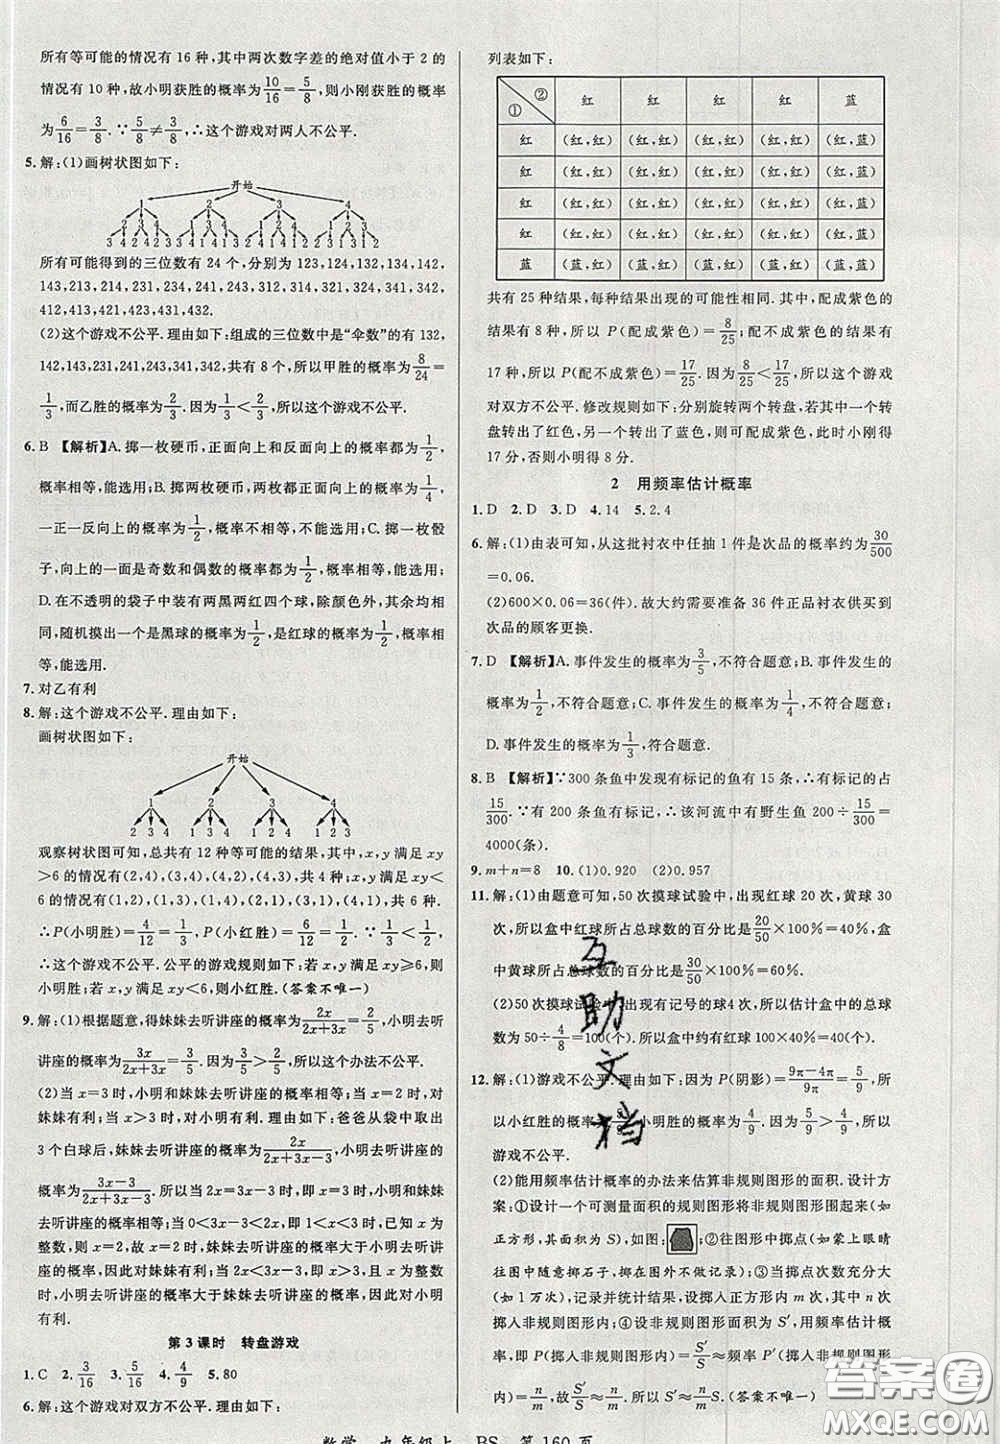 所有等可能的情况有 16 种,其中两次数字差的绝对值小于 2 的
情况有 10 种,故小明获胜的概率为10/16=5/8,则小刚获胜的概率
为6/16=3/8.∵5/8≠3/8,∴这个游戏对两人不公平.
5.解:(1)画树状图如下:
开始
1 2 3 4
2 3 4 1 3 4 1 2 4 1 2 3
3 4 2 4 2 3 3 4 1 4 1 3 2 4 1 4 1 2 2 3 1 3 1 2
所有可能得到的三位数有 24 个,分别为 123,124,132,134,142,
143,213,214,231,234,241,243,312,314,321,324,341,342,
412,413,421,423,431,432.
(2)这个游戏不公平.理由如下:组成的三位数中是“伞数”的有 132,
142,143,231,241,243,341,342,共有 8 个,所以甲胜的概率为8/24=
1/3,而乙胜的概率为2/3.因为1/3<2/3,所以这个游戏不公平.
6.B 【解析】A.掷一枚硬币,正面向上和反面向上的概率都为1/2,
概率相等,能选用;B.掷两枚硬币,正面向上的概率都为1/4,
一正一反向上的概率为1/2,概率不相等,不能选用;C.掷一枚骰
子,向上的一面是奇数和偶数的概率都为1/2,概率相等,能选用;
D.在不透明的袋子中装有两黑两红四个球,除颜色外,其余均相
同,随机摸出一个是黑球的概率为1/2,是红球的概率为1/2,概率相
等,能选用.
7.对乙有利
8.解:这个游戏不公平.理由如下:
画树状图如下:
开始
1 2 3 4
2 3 4 1 3 4 1 2 4 1 2 3
观察树状图可知,总共有 12 种等可能的结果,其中,x,y 满足 xy
>6 的情况有(2,4),(3,4),(4,2),(4,3),共 4 种;x,y 满足 xy<
6 的情况有(1,2),(1,3),(1,4),(2,1),(3,1),(4,1),共 6 种.
∴P(小明胜)=4/12=1/3,P(小红胜)=6/12=1/2.∵1/3<1/2,∴这
个游戏不公平.公平的游戏规则如下:若 x,y 满足 xy⩾6,则小明
胜;若 x,y 满足 xy<6,则小红胜.(答案不唯一)
9.解:(1)根据题意,得妹妹去听讲座的概率为2x/(2x+3x)=2/5,小明去听
讲座的概率为3x/(2x+3x)=3/5.因为3/5>2/5,所以这个办法不公平.
(2)当 x=3 时,对小明和妹妹都公平;当 x=2 时,对妹
妹有利;当 x>3 时,对小明有利.理由如下:爸爸从袋中取出
3 个白球后,妹妹去听讲座的概率为2x/(2x+3x-3),小明去听讲座的概
率为(3x-3)/(2x+3x-3).所以当 2x=3x-3 时,即 x=3 时,小明和妹妹
去听讲座的概率相等;当 0<3x-3<2x 时,即 1<x<3,因为 x 为
整数,则 x=2 时,妹妹去听讲座的概率大于小明去听讲座的概
率,因此对妹妹有利;当 3x-3>2x 时,即 x>3,且 x 为整数时,
小明去听讲座的概率大于妹妹去听讲座的概率,因此对小明
有利.
第 3 课时 转盘游戏
1.C 2.3/16 3.5/16 4.4/9 5.80
6.解:这个游戏对双方不公平.理由如下:
列表如下:
① ② 红 红 红 红 蓝
红 (红,红) (红,红) (红,红) (红,红) (红,蓝)
红 (红,红) (红,红) (红,红) (红,红) (红,蓝)
红 (红,红) (红,红) (红,红) (红,红) (红,蓝)
红 (红,红) (红,红) (红,红) (红,红) (红,蓝)
蓝 (蓝,红) (蓝,红) (蓝,红) (蓝,红) (蓝,蓝)
共有 25 种结果,每种结果出现的可能性相同.其中,配成紫色的
结果有 8 种,所以 P(配成紫色)=8/25;配不成紫色的结果有
17 种,所以 P(配不成紫色)=17/25.因为8/25<17/25,所以这个游戏
对双方不公平.修改规则如下:分别旋转两个转盘,若其中一个转
盘转出了红色,另一个转出了蓝色,则可配成紫色,此时小刚得
17 分,否则小明得 8 分.
2 用频率估计概率
1.D 2.D 3.D 4.14 5.2.4
6.解:(1)由表可知,从这批衬衣中任抽 1 件是次品的概率约为30/500
=0.06.
(2)600×0.06=36(件).故大约需要准备 36 件正品衬衣供买到
次品的顾客更换.
7.D 【解析】A.事件发生的概率为3/5,不符合题意;B.事件发生的
概率为1/2,不符合题意;C.事件发生的概率为1/4,不符合题意;
D.事件发生的概率为1/3,符合题意.
8.B 【解析】∵300 条鱼中发现有标记的鱼有 15 条,∴有标记的占
15/300.∵有 200 条鱼有标记,∴该河流中有野生鱼 200÷15/300=
4000(条).
9.m+n=8 10.(1)0.920 (2)0.957
11.解:(1)由题意可知,50 次摸球试验中,出现红球 20 次,黄球 30
次,所以盒中红球所占总球数的百分比是20/50×100%=40%,盒
中黄球所占总球数的百分比是30/50×100%=60%.
(2)50 次摸球试验中,出现有记号的球4 次,所以估计盒中的总球
数约为 50÷4/8=100(个).所以盒中约有红球 100×40%=40(个).
12.解:(1)游戏不公平.理由如下:因为 P(阴影)=(9π-4π)/9π=5/9,所
以小红胜的概率为5/9,小明胜的概率为4/9.因为5/9>4/9,所以
游戏不公平.
(2)能用频率估计概率的办法来估算非规则图形的面积.设计方
案:①设计一个可测量面积的规则图形将非规则图形围起来(如
正方形,其面积为 S),如图: ;②往图形中掷点(如蒙上眼睛
往图中随意掷石子,掷在图外不做记录);③当掷点次数充分大
(如 1 万次),记录并统计结果,设掷入正方形内 m 次,其中 n 次
掷入非规则图形内;④设非规则图形面积为 S′,用频率估计概
率,即 P(掷入非规则图形内)=S′/S≈频率 P′(掷入非规则图形
内)=n/m,故S′/S≈n/m,所以 S′≈Sn/m.(答案不唯一)
互助文档
答案圈
MXQE.COM
数学 九年级上 BS 第 160 页